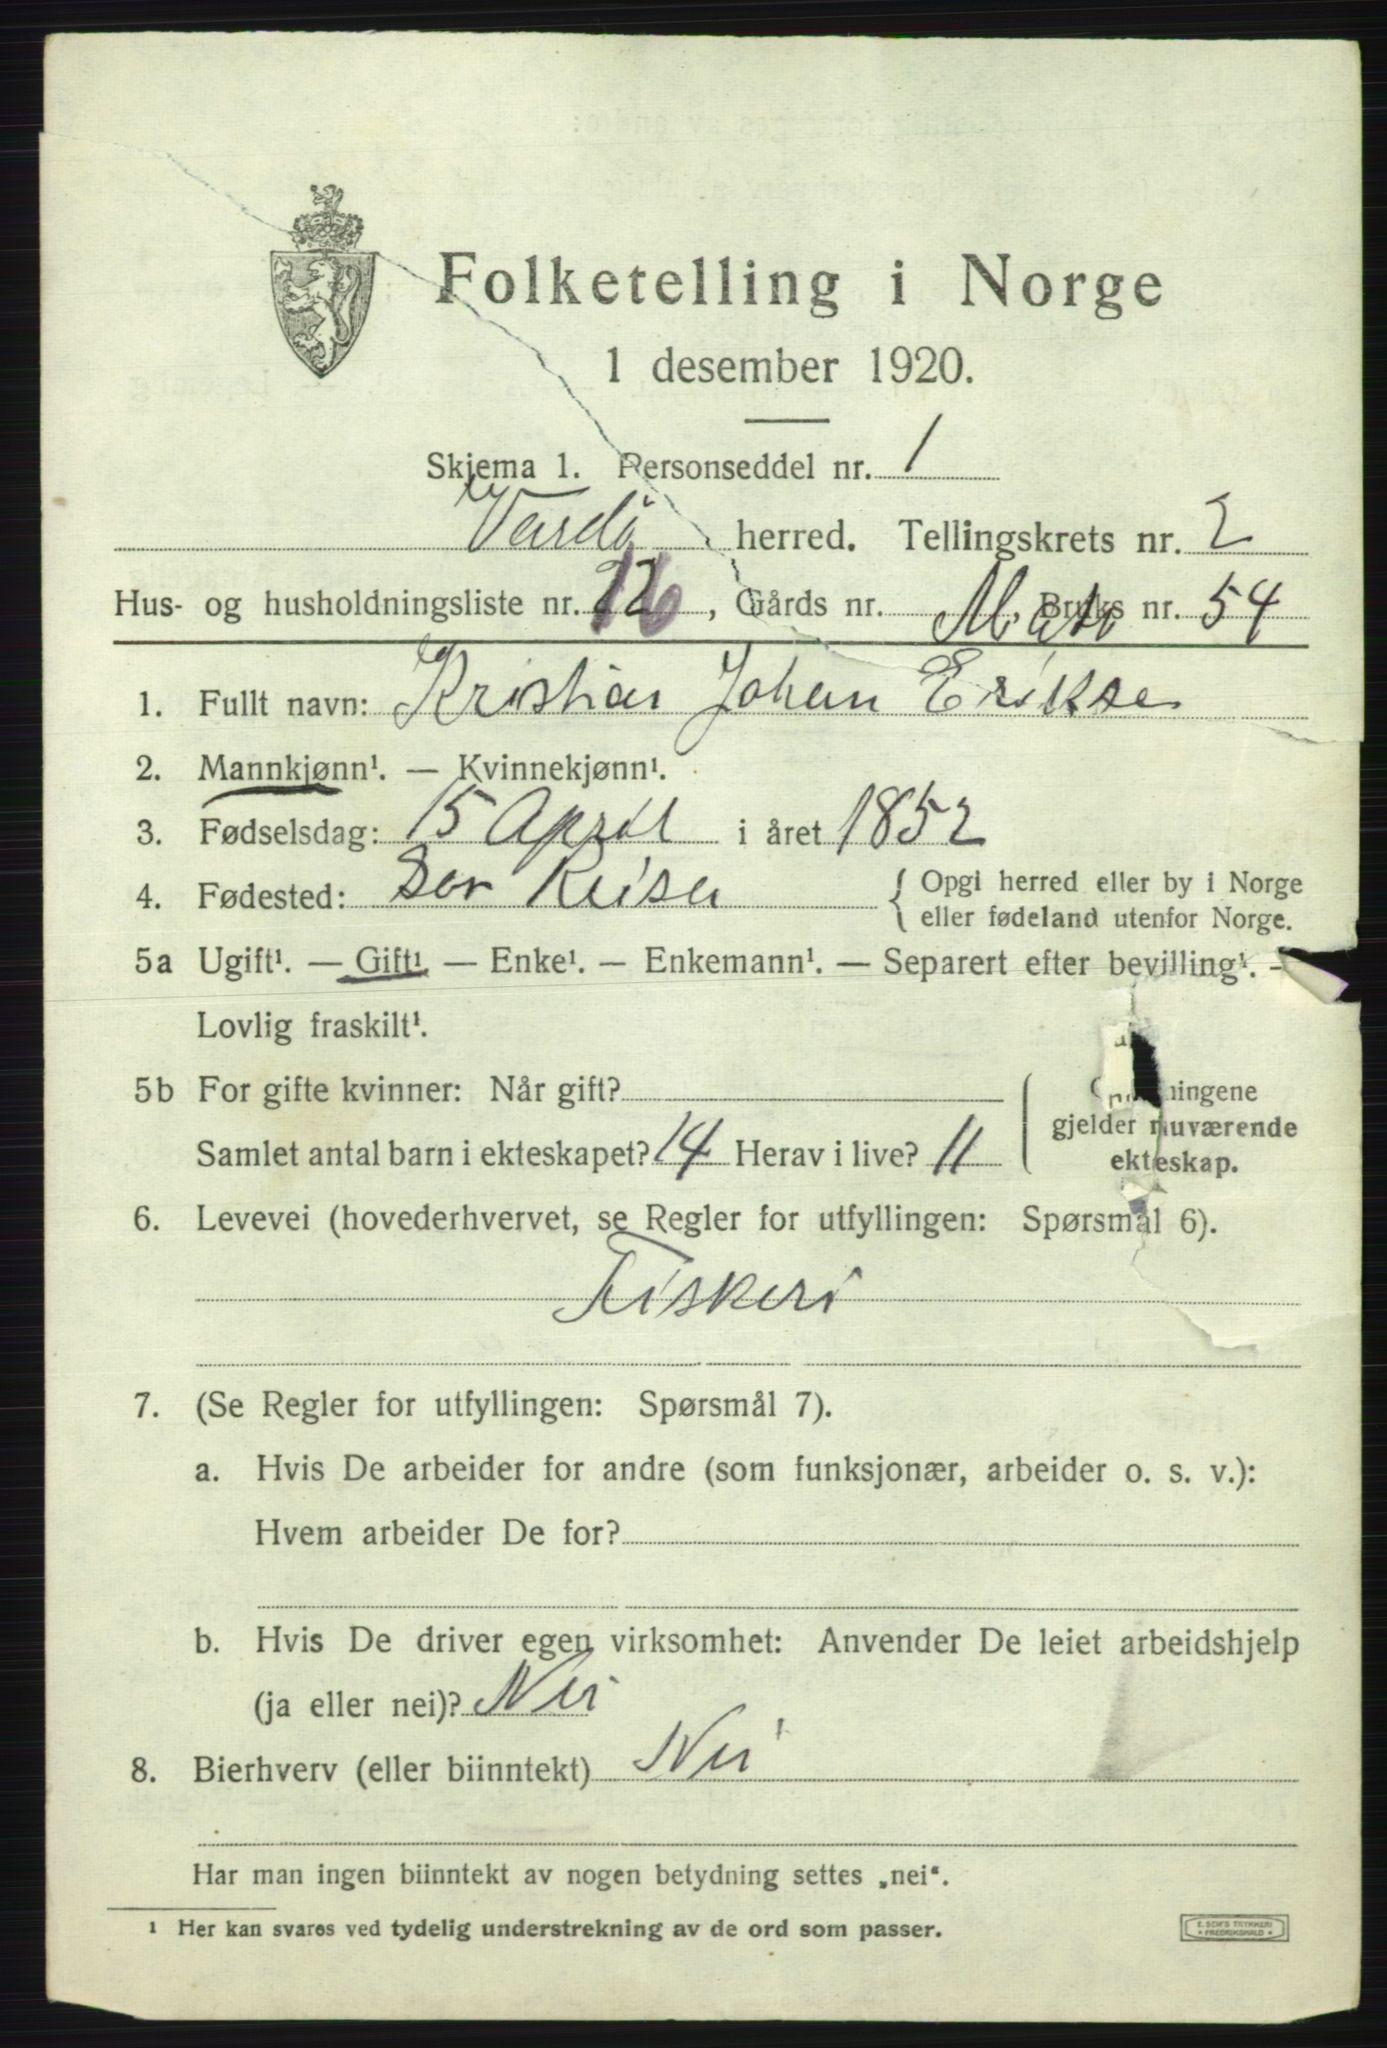 Folketelling i Norge
1 desember 1920.
Skjema 1. Personseddel nr. 1
Vardø herred. Tellingskrets nr. 2
Hus- og husholdningsliste nr. 16, Gårds nr. Bruks nr. 54
1. Fullt navn: Kristian Johan Erikse
2. Mannkjønn¹. — Kvinnekjønn¹.
3. Fødselsdag: 15 April i året 1852
4. Fødested: Sør Reisa { Opgi herred eller by i Norge
eller fødeland utenfor Norge.
5a Ugift¹. — Gift¹ — Enke¹. — Enkemann¹. — Separert efter bevilling¹. —
Lovlig fraskilt¹.
5b For gifte kvinner: Når gift?
ningene
gjelder nuværende
Samlet antal barn i ekteskapet? 14 Herav i live? 11
ekteskap.
6. Levevei (hovederhvervet, se Regler for utfyllingen: Spørsmål 6).
Fiskeri
7. (Se Regler for utfyllingen: Spørsmål 7).
a. Hvis De arbeider for andre (som funksjonær, arbeider o. s. v.):
Hvem arbeider De for?
b. Hvis De driver egen virksomhet: Anvender De leiet arbeidshjelp
(ja eller nei)? Nei
8. Bierhverv (eller biinntekt) Nei
Har man ingen biinntekt av nogen betydning settes „nei“.
¹ Her kan svares ved tydelig understrekning av de ord som passer.
E. SEM'S TRYKKERI
* FREDRIKSHALD *